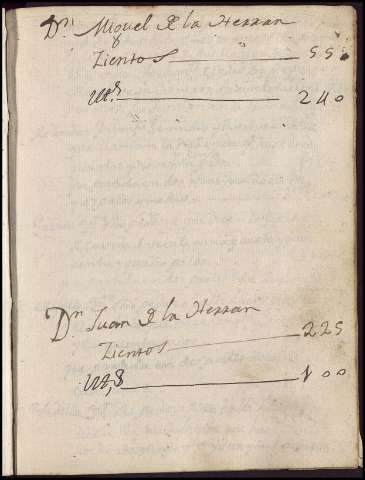 Dn. Miguel de la Herran
Zientos 550
240
Dn Juan de la Herran
Zientos 225
100